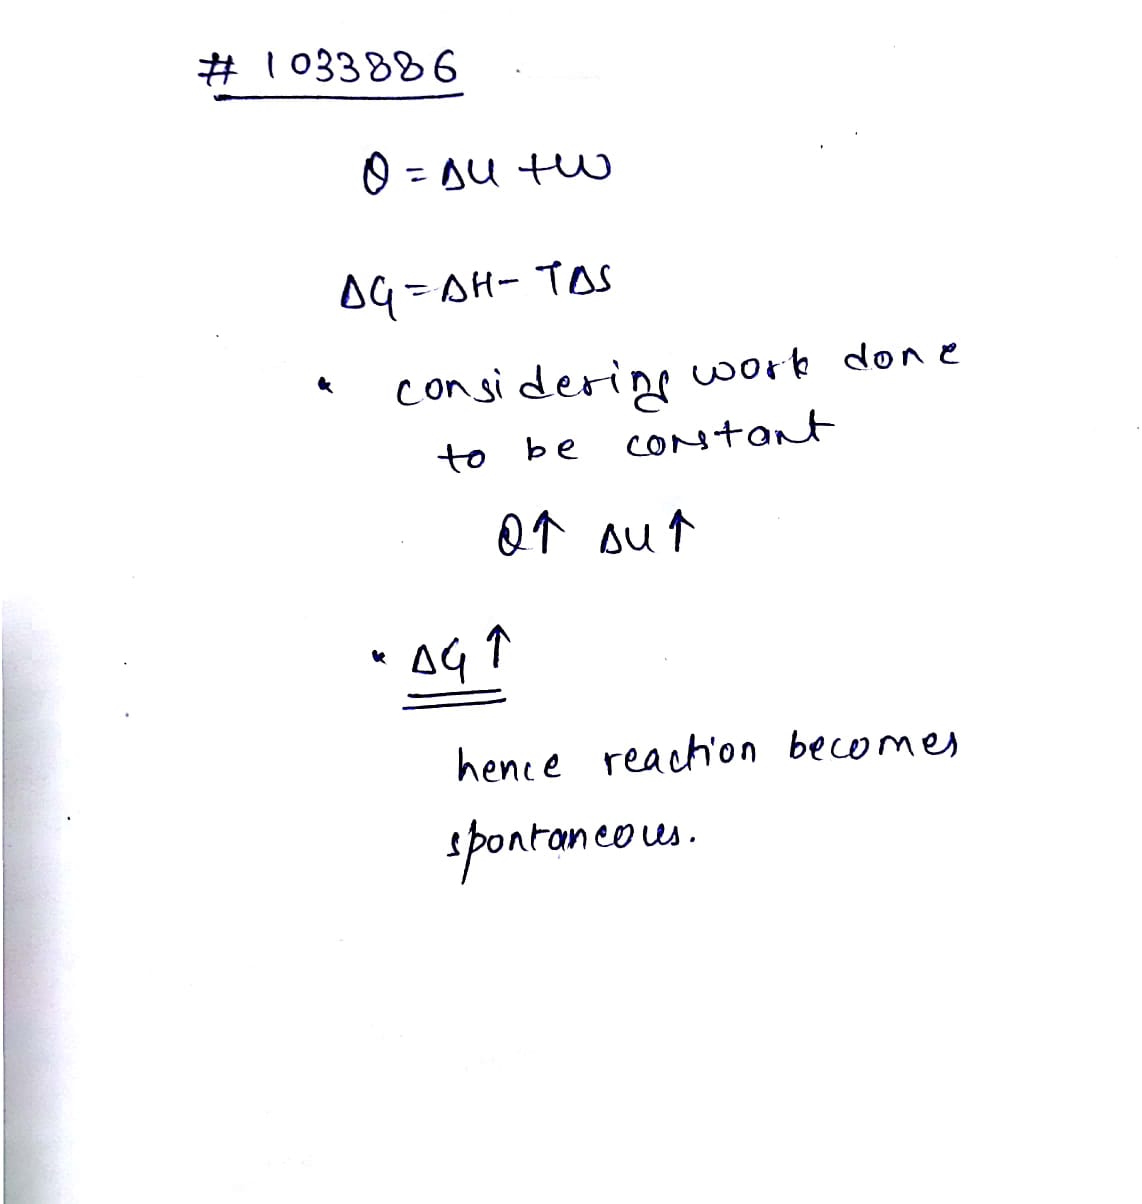 # 1033886
Q = ΔU + W
ΔG = ΔH - TΔS
* considering work done
to be constant
Q↑ ΔU↑
* ΔG ↑
hence reaction becomes
spontaneous.